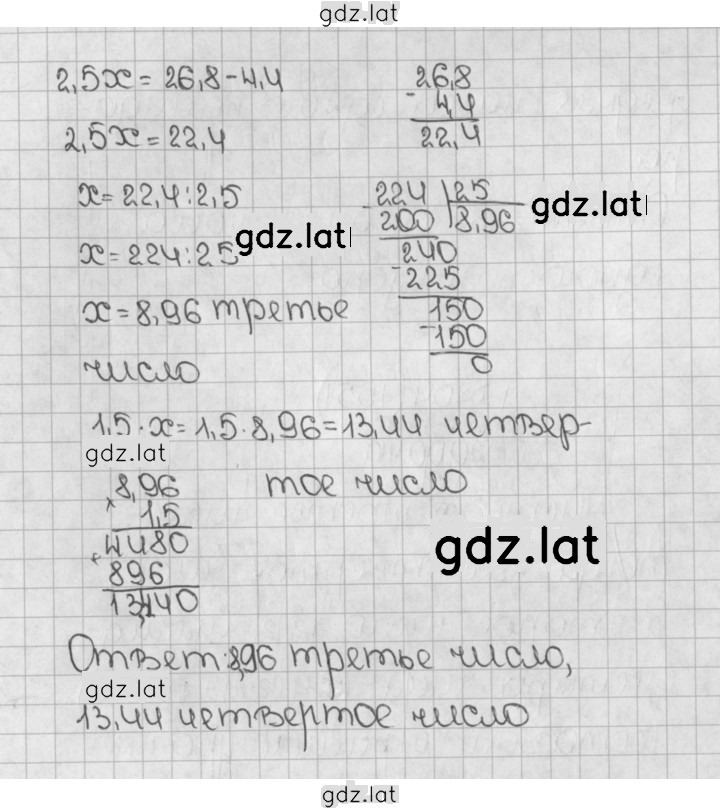 gdz.lat
2,5x = 26,8 - 4,4
26,8
- 4,4
22,4
2,5x = 22,4
x = 22,4 : 2,5
x = 224 : 25
x = 8,96 третье
число
- 224 | 25
200 | 8,96
240
- 225
150
- 150
0
gdz.lat
gdz.lat
1,5 · x = 1,5 · 8,96 = 13,44 четвер-
тое число
gdz.lat
8,96
× 1,5
+ 4480
896
13,440
gdz.lat
Ответ: 8,96 третье число,
gdz.lat
13,44 четвертое число
gdz.lat